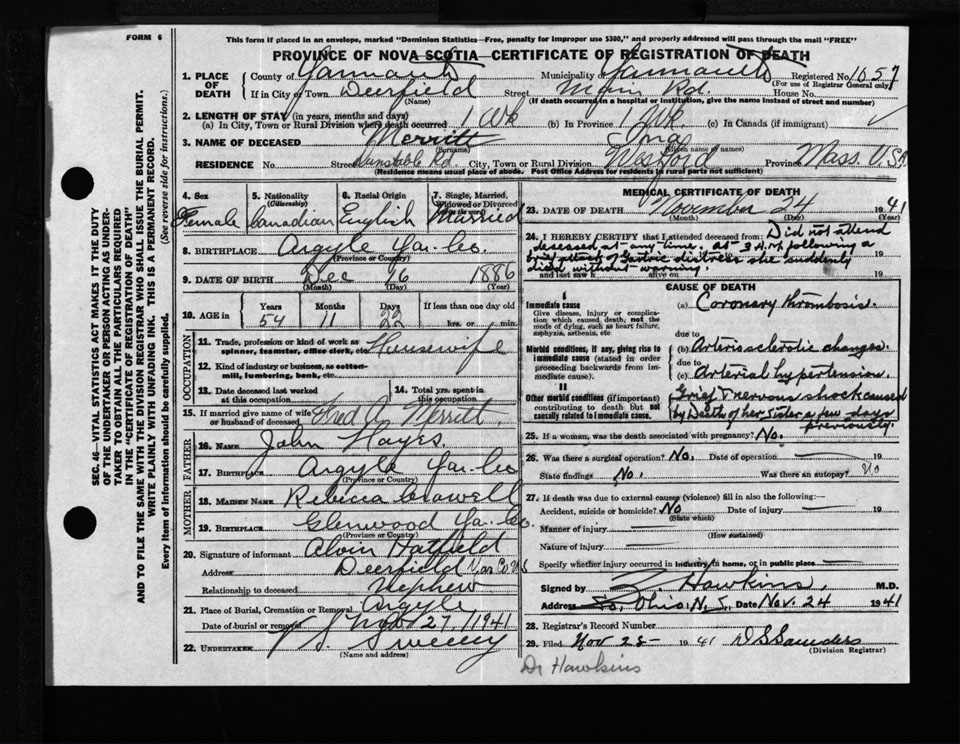 FORM 6
This form if placed in an envelope, marked "Dominion Statistics—Free, penalty for improper use $300," and properly addressed will pass through the mail "FREE"
PROVINCE OF NOVA SCOTIA—CERTIFICATE OF REGISTRATION OF DEATH
1. PLACE OF DEATH
County of Yarmouth Municipality of Yarmouth Registered No. 1057
(For use of Registrar General only)
If in City or Town Deerfield Street Main Rd. House No.
(Name) (If death occurred in a hospital or institution, give the name instead of street and number)
2. LENGTH OF STAY (in years, months and days)
(a) In City, Town or Rural Division where death occurred 1 Wk (b) In Province 1 Wk (c) In Canada (if immigrant)
3. NAME OF DECEASED Merritt
(Surname) (Given name or names)
RESIDENCE No. Street Dunstable Rd. City, Town or Rural Division Westford Province Mass. U.S.A
(Residence means usual place of abode. Post Office Address for residents in rural parts not sufficient)
4. Sex Female
5. Nationality (Citizenship) Canadian
6. Racial Origin English
7. Single, Married, Widowed or Divorced (write the word) Married
8. BIRTHPLACE Argyle Yar. Co.
(Province or Country)
9. DATE OF BIRTH Dec 26 1886
(Month) (Day) (Year)
10. AGE Years Months Days If less than one day old
54 11 hrs. or min.
OCCUPATION
11. Trade, profession or kind of work as spinner, teamster, office clerk, etc. Housewife
12. Kind of industry or business, as cotton-mill, lumbering, bank, etc.
13. Date deceased last worked at this occupation
14. Total yrs. spent in this occupation
15. If married give name of wife or husband of deceased Fred A. Merritt.
FATHER
16. NAME John Hayes.
17. BIRTHPLACE Argyle Yar. Co
(Province or Country)
MOTHER
18. MAIDEN NAME Rebecca Crowell
19. BIRTHPLACE Glenwood Yar. Co.
(Province or Country)
20. Signature of informant Alvin Hatfield
Address Deerfield Yar Co N S
Relationship to deceased Nephew
21. Place of Burial, Cremation or Removal Argyle
Date of burial or removal Nov 27, 1941
22. UNDERTAKER V. S. Sweeny
(Name and address)
MEDICAL CERTIFICATE OF DEATH
23. DATE OF DEATH November 24 1941
(Month) (Day) (Year)
24. I HEREBY CERTIFY that I attended deceased from: Did not attend
deceased at any time. At 3 A.M. following a
brief attack of Gastric distress she suddenly
died without warning.
and last saw h alive on 19
CAUSE OF DEATH
I
Immediate cause
Give disease, injury or complication which caused death, not the mode of dying, such as heart failure, asphyxia, asthenia, etc
(a) Coronary thrombosis.
due to
Morbid conditions, if any, giving rise to immediate cause (stated in order proceeding backwards from immediate cause).
(b) Arteriosclerotic changes.
due to
(c) Arterial hypertension.
II
Other morbid conditions (if important) contributing to death but not causally related to immediate cause.
Grief & nervous shock caused
by Death of her sister a few days
previously.
25. If a woman, was the death associated with pregnancy? No.
26. Was there a surgical operation? No. Date of operation 19
State findings No. Was there an autopsy? No
27. If death was due to external causes (violence) fill in also the following:—
Accident, suicide or homicide? No Date of injury 19
(State which)
Manner of injury
(How sustained)
Nature of injury
Specify whether injury occurred in industry, in home, or in public place
Signed by Z. Hawkins, M.D.
Address So. Ohio, N.S., Date Nov. 24 1941
28. Registrar's Record Number
29. Filed Nov 25 1941 D S Saunders
(Division Registrar)
Dr Hawkins
SEC. 46—VITAL STATISTICS ACT MAKES IT THE DUTY
OF THE UNDERTAKER OR PERSON ACTING AS UNDER-
TAKER TO OBTAIN ALL THE PARTICULARS REQUIRED
IN THE "CERTIFICATE OF REGISTRATION OF DEATH"
AND TO FILE THE SAME WITH THE DIVISION REGISTRAR WHO SHALL ISSUE THE BURIAL PERMIT.
WRITE PLAINLY WITH UNFADING INK. THIS IS A PERMANENT RECORD.
Every item of information should be carefully supplied. (See reverse side for instructions.)